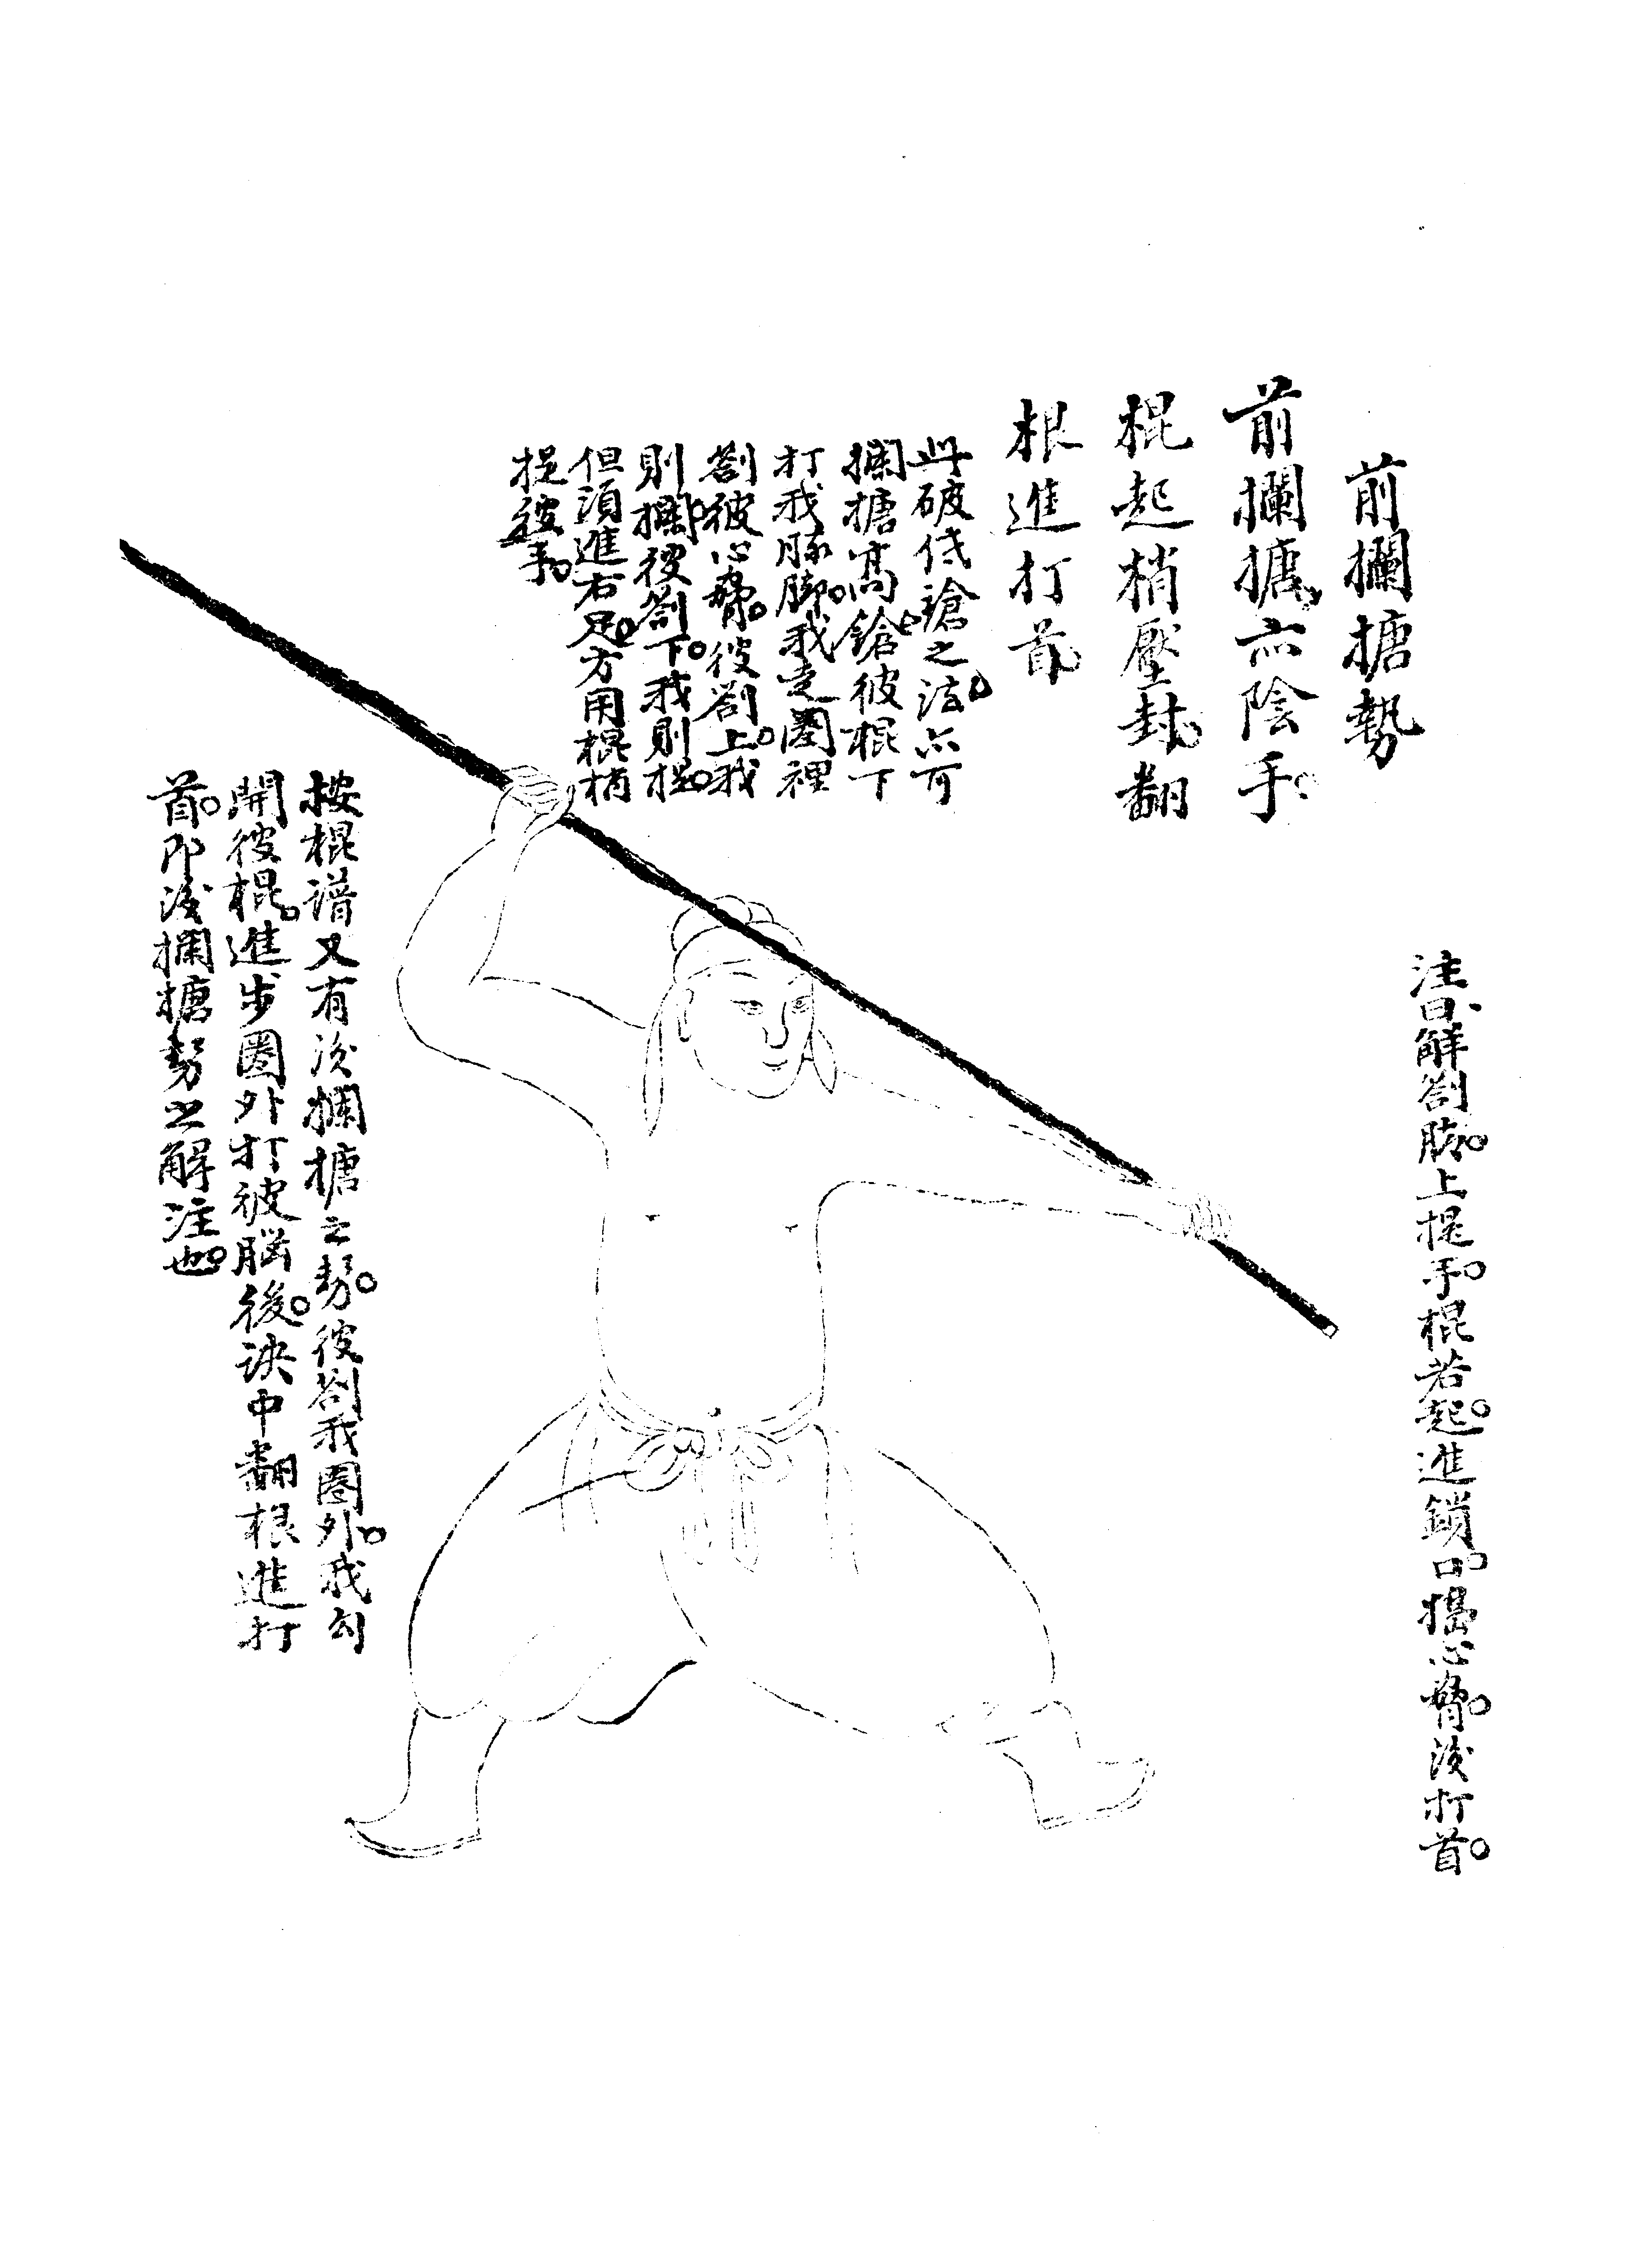 前攔搪勢
前攔搪亦陰手
棍起梢壓封翻
根進打首
此破低鎗之法亦可
攔搪高鎗彼棍下
打我膝脚我走圈裡
劄彼心脅彼劄上我
則攔彼劄下我則提
但須進右足方用棍梢
提彼手
注曰解劄脚上提手棍若起進鎖口搗心脅後打首
按棍譜又有後攔搪之勢彼劄我圈外我勾
開彼棍進步圈外打彼腦後訣中翻根進打
首即後攔搪勢之解注也